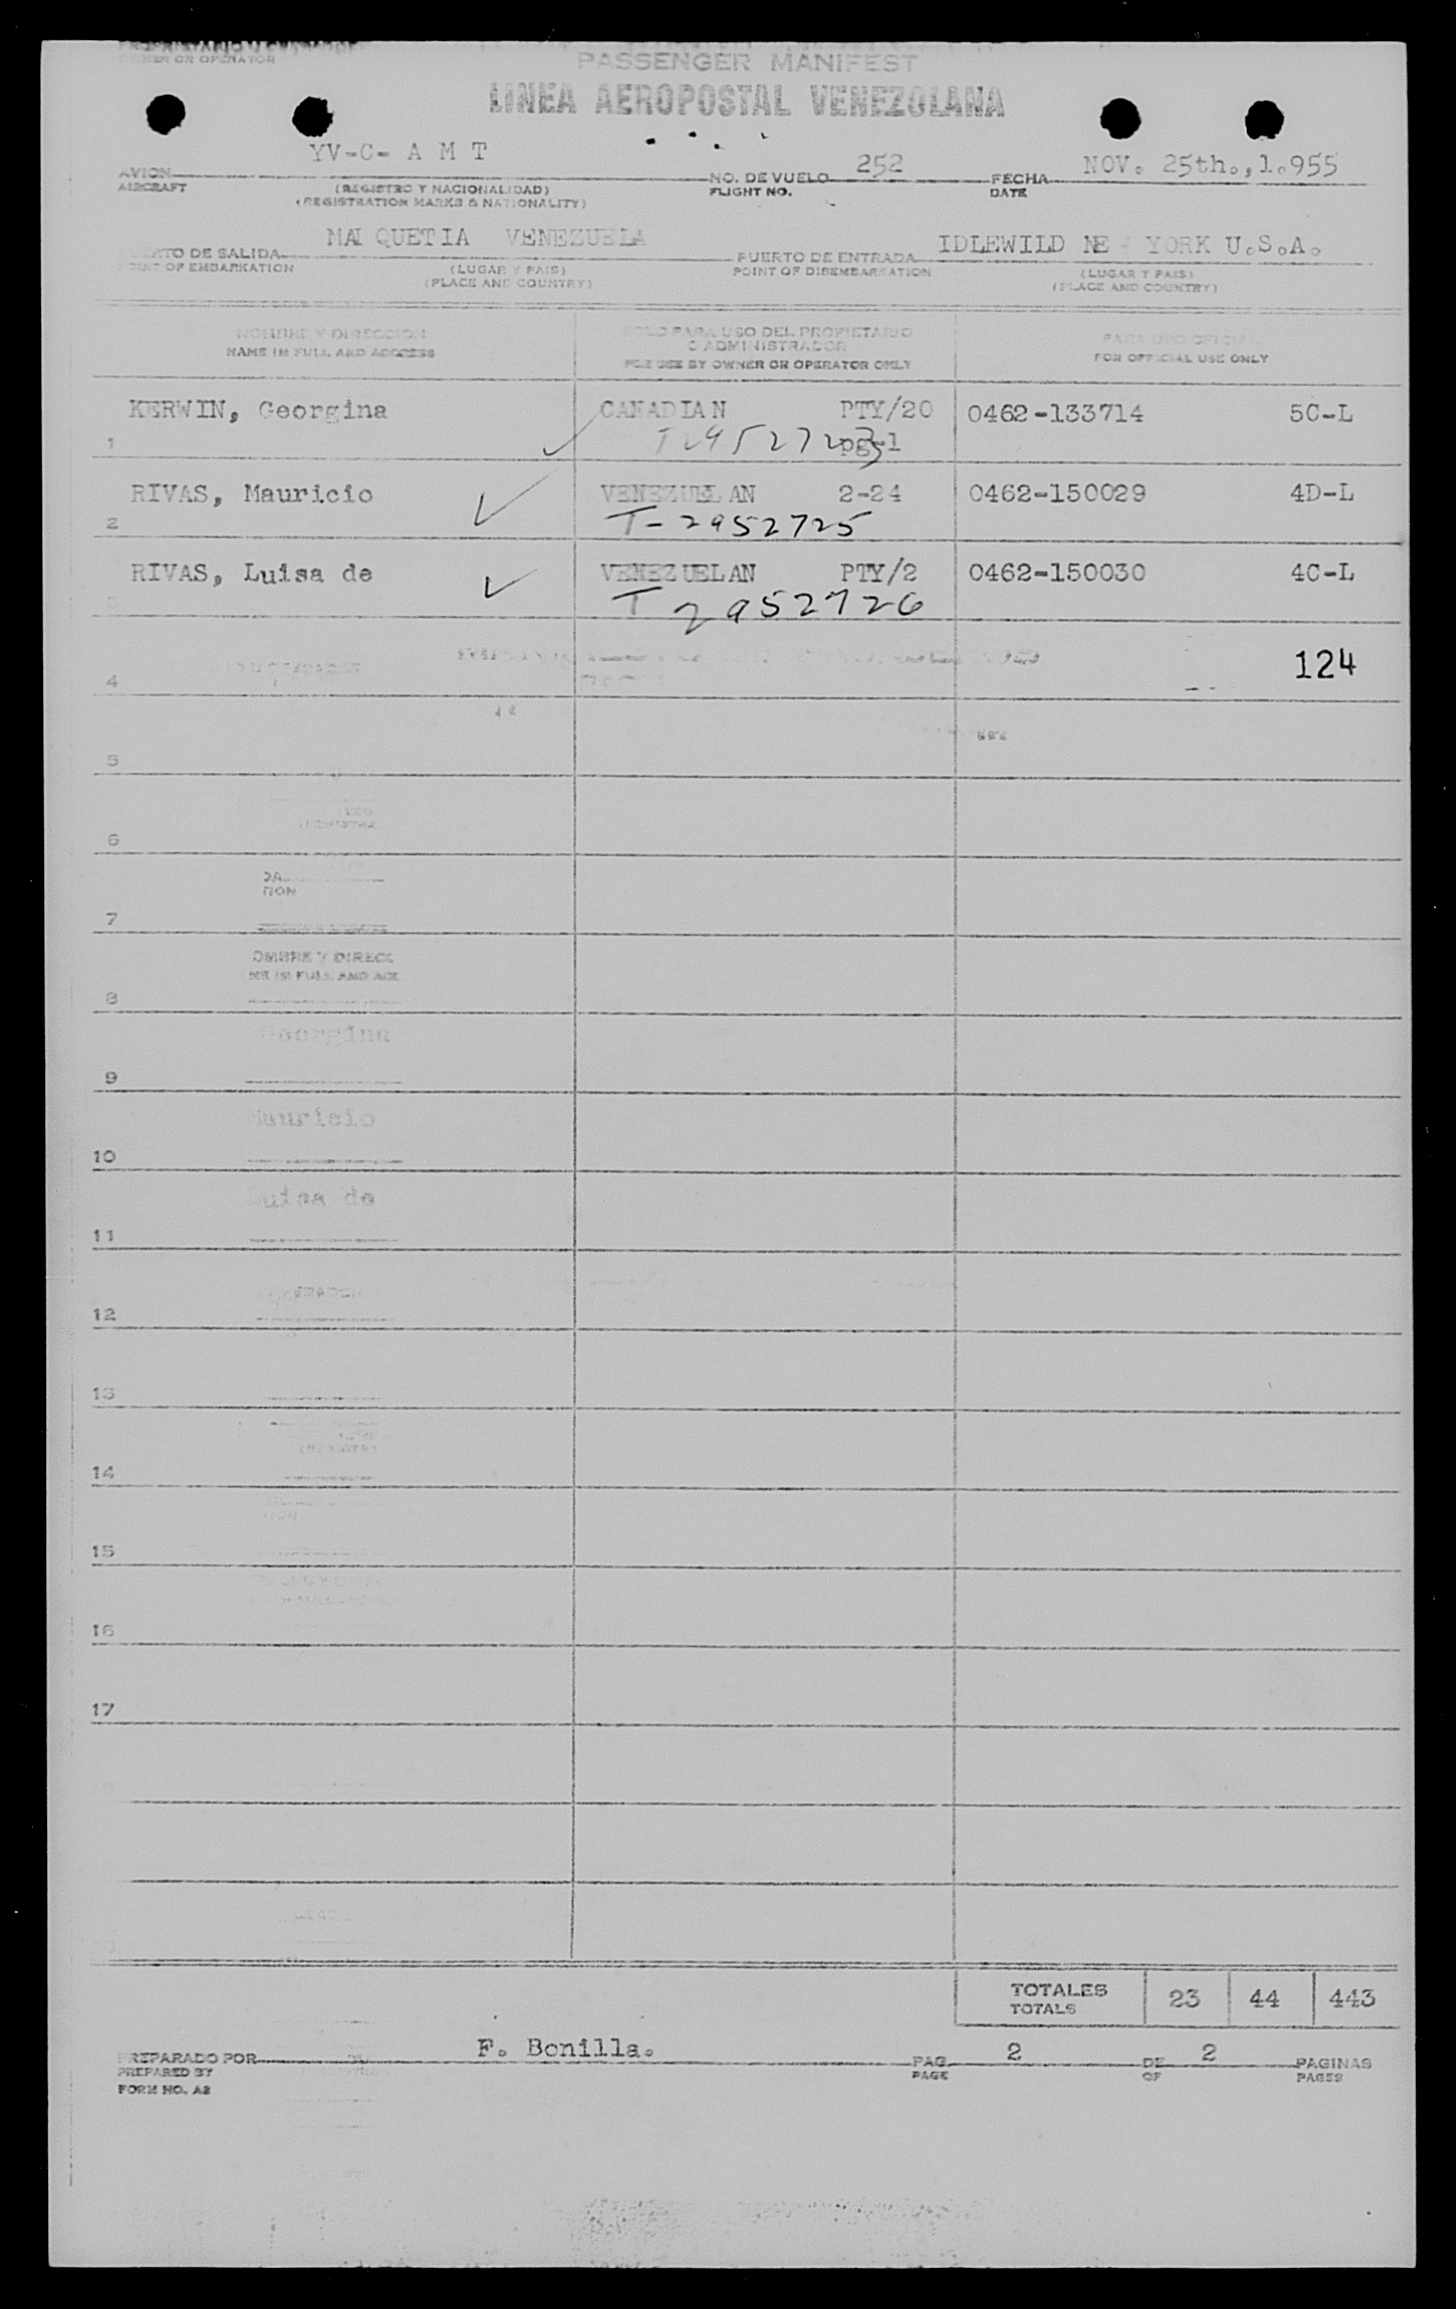 PROPIETARIO
OWNER OR OPERATOR
PASSENGER MANIFEST
LINEA AEROPOSTAL VENEZOLANA
YV-C- A M T 252 NOV. 25th.,1.955
AVION NO. DE VUELO FECHA
AIRCRAFT (REGISTRO Y NACIONALIDAD) FLIGHT NO. DATE
(REGISTRATION MARKS & NATIONALITY)
MAI QUETIA VENEZUELA IDLEWILD NE YORK U.S.A.
PUERTO DE SALIDA PUERTO DE ENTRADA
POINT OF EMBARKATION (LUGAR Y PAIS) POINT OF DISEMBARKATION (LUGAR Y PAIS)
(PLACE AND COUNTRY) (PLACE AND COUNTRY)
NOMBRE Y DIRECCION SOLO PARA USO DEL PROPIETARIO PARA USO OFICIAL
NAME IN FULL AND ADDRESS O ADMINISTRADOR FOR OFFICIAL USE ONLY
FOR USE BY OWNER OR OPERATOR ONLY
KERWIN, Georgina CANADIAN PTY/20 0462-133714 5C-L
1 pg-1
RIVAS, Mauricio VENEZUELAN 2-24 0462-150029 4D-L
2 T-2952725
RIVAS, Luisa de VENEZUELAN PTY/2 0462-150030 4C-L
T 2952726
124
4
5
6
7
OMBRE Y DIRECC
8
Georgina
9
Mauricio
10
Luisa de
11
12
13
14
15
16
17
TOTALES 23 44 443
TOTALS
F. Bonilla. 2 2
PREPARADO POR PAG. DE PAGINAS
PREPARED BY PAGE OF PAGES
FORM NO. A2